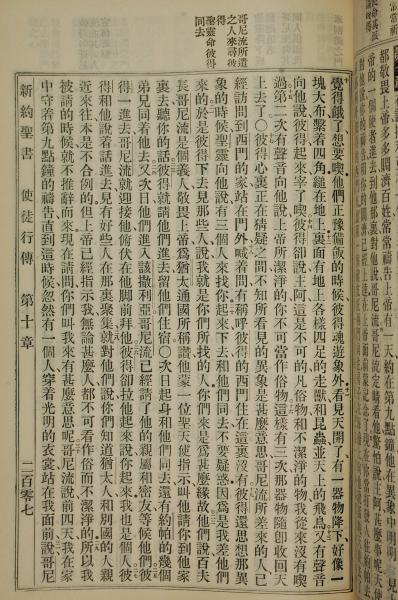 都敬畏上帝多多賙濟百姓常常禱告上帝有一天約在第九點鐘他在異象中明明見上
帝的一個使者進去到他那裏對他說哥尼流哥尼流定睛看他驚怕說主阿甚麼事呢天使
哥尼流所遣
之人來尋彼
得
聖靈命彼得
同去
覺得餓了想要喫他們正豫備飯的時候彼得魂遊象外看見天開了有一器物降下好像一
塊大布繫着四角縋在地上裏面有地上各樣四足的走獸和昆蟲並天上的飛鳥又有聲音
向他說彼得起來宰了喫彼得卻說主阿這是不可的凡俗物和不潔淨的物我從來沒有喫
過第二次有聲音向他說上帝所潔淨的你不可當作俗物這樣有三次那器物隨即收回天
上去了〇彼得心裏正在猜疑之間不知所看見的異象是甚麼意思哥尼流所差來的人已
經訪問到西門的家站在門外喊着問有稱呼彼得的西門住在這裏沒有彼得還思想那異
象的時候聖靈向他說有三個人來找你起來下去和他們同去不要疑惑因爲是我差他們
來的於是彼得下去見那些人說我就是你們所找的人你們來是爲甚麼緣故他們說百夫
長哥尼流是個義人敬畏上帝爲猶太通國所稱讚他蒙一位聖天使指示叫他請你到他家
裏去聽你的話彼得就請他們進去留他們住宿〇次日起身和他們同去還有約帕的幾個
弟兄同着他去又次日他們進入該撒利亞哥尼流已經請了他的親屬和密友等候他們彼
得一進去哥尼流就迎接他俯伏在他脚前拜他彼得卻拉他起來說你起來我也是個人彼
得和他說着話進去見有好些人在那裏聚集就對他們說你們知道猶太人和別國的人親
近來往本是不合例的但上帝已經指示我無論甚麼人都不可看作俗而不潔淨的所以我
被請的時候就不推辭而來現在請問你們叫我來有甚麼意思呢哥尼流說前四天我在家
中守着第九點鐘的禱告直到這時候忽然有一個人穿着光明的衣裳站在我面前說哥尼
新約聖書 使徒行傳 第十章 二百零七